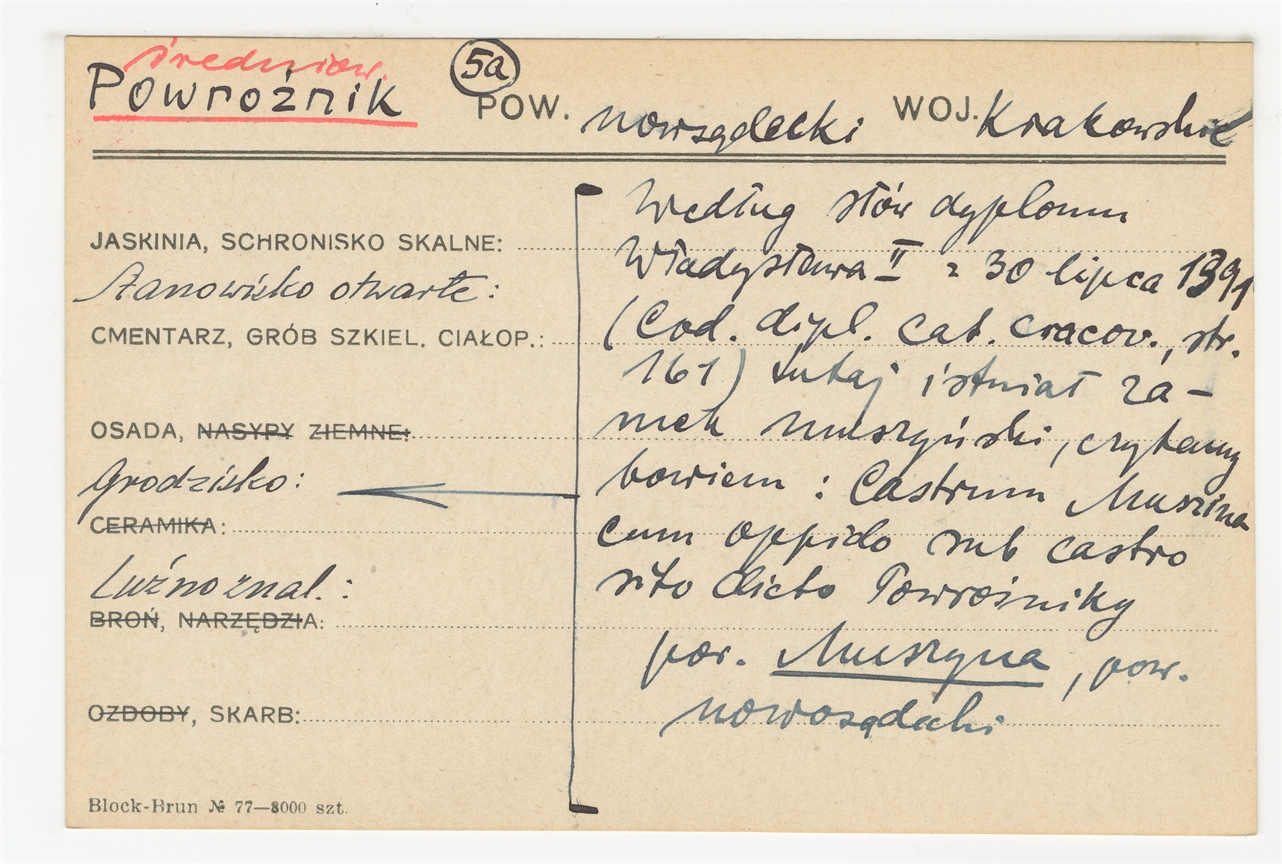 średniow.
Powroźnik
5a
POW. nowsądecki WOJ. Krakowskie
JASKINIA, SCHRONISKO SKALNE:
Stanowisko otwarte:
CMENTARZ, GRÓB SZKIEL. CIAŁOP.:
OSADA, NASYPY ZIEMNE:
Grodzisko:
CERAMIKA:
Luźno znal.:
BROŃ, NARZĘDZIA:
OZDOBY, SKARB:
Block-Brun № 77—8000 szt.
Według słów dyplomu
Władysława II z 30 lipca 1391
(Cod. dipl. cat. cracov., str.
161) tutaj istniał za-
mek muszyński, czytamy
bowiem: Castrum Muszina
cum oppido sub castro
sito dicto Powroźniky
por. Muszyna, pow.
nowosądecki